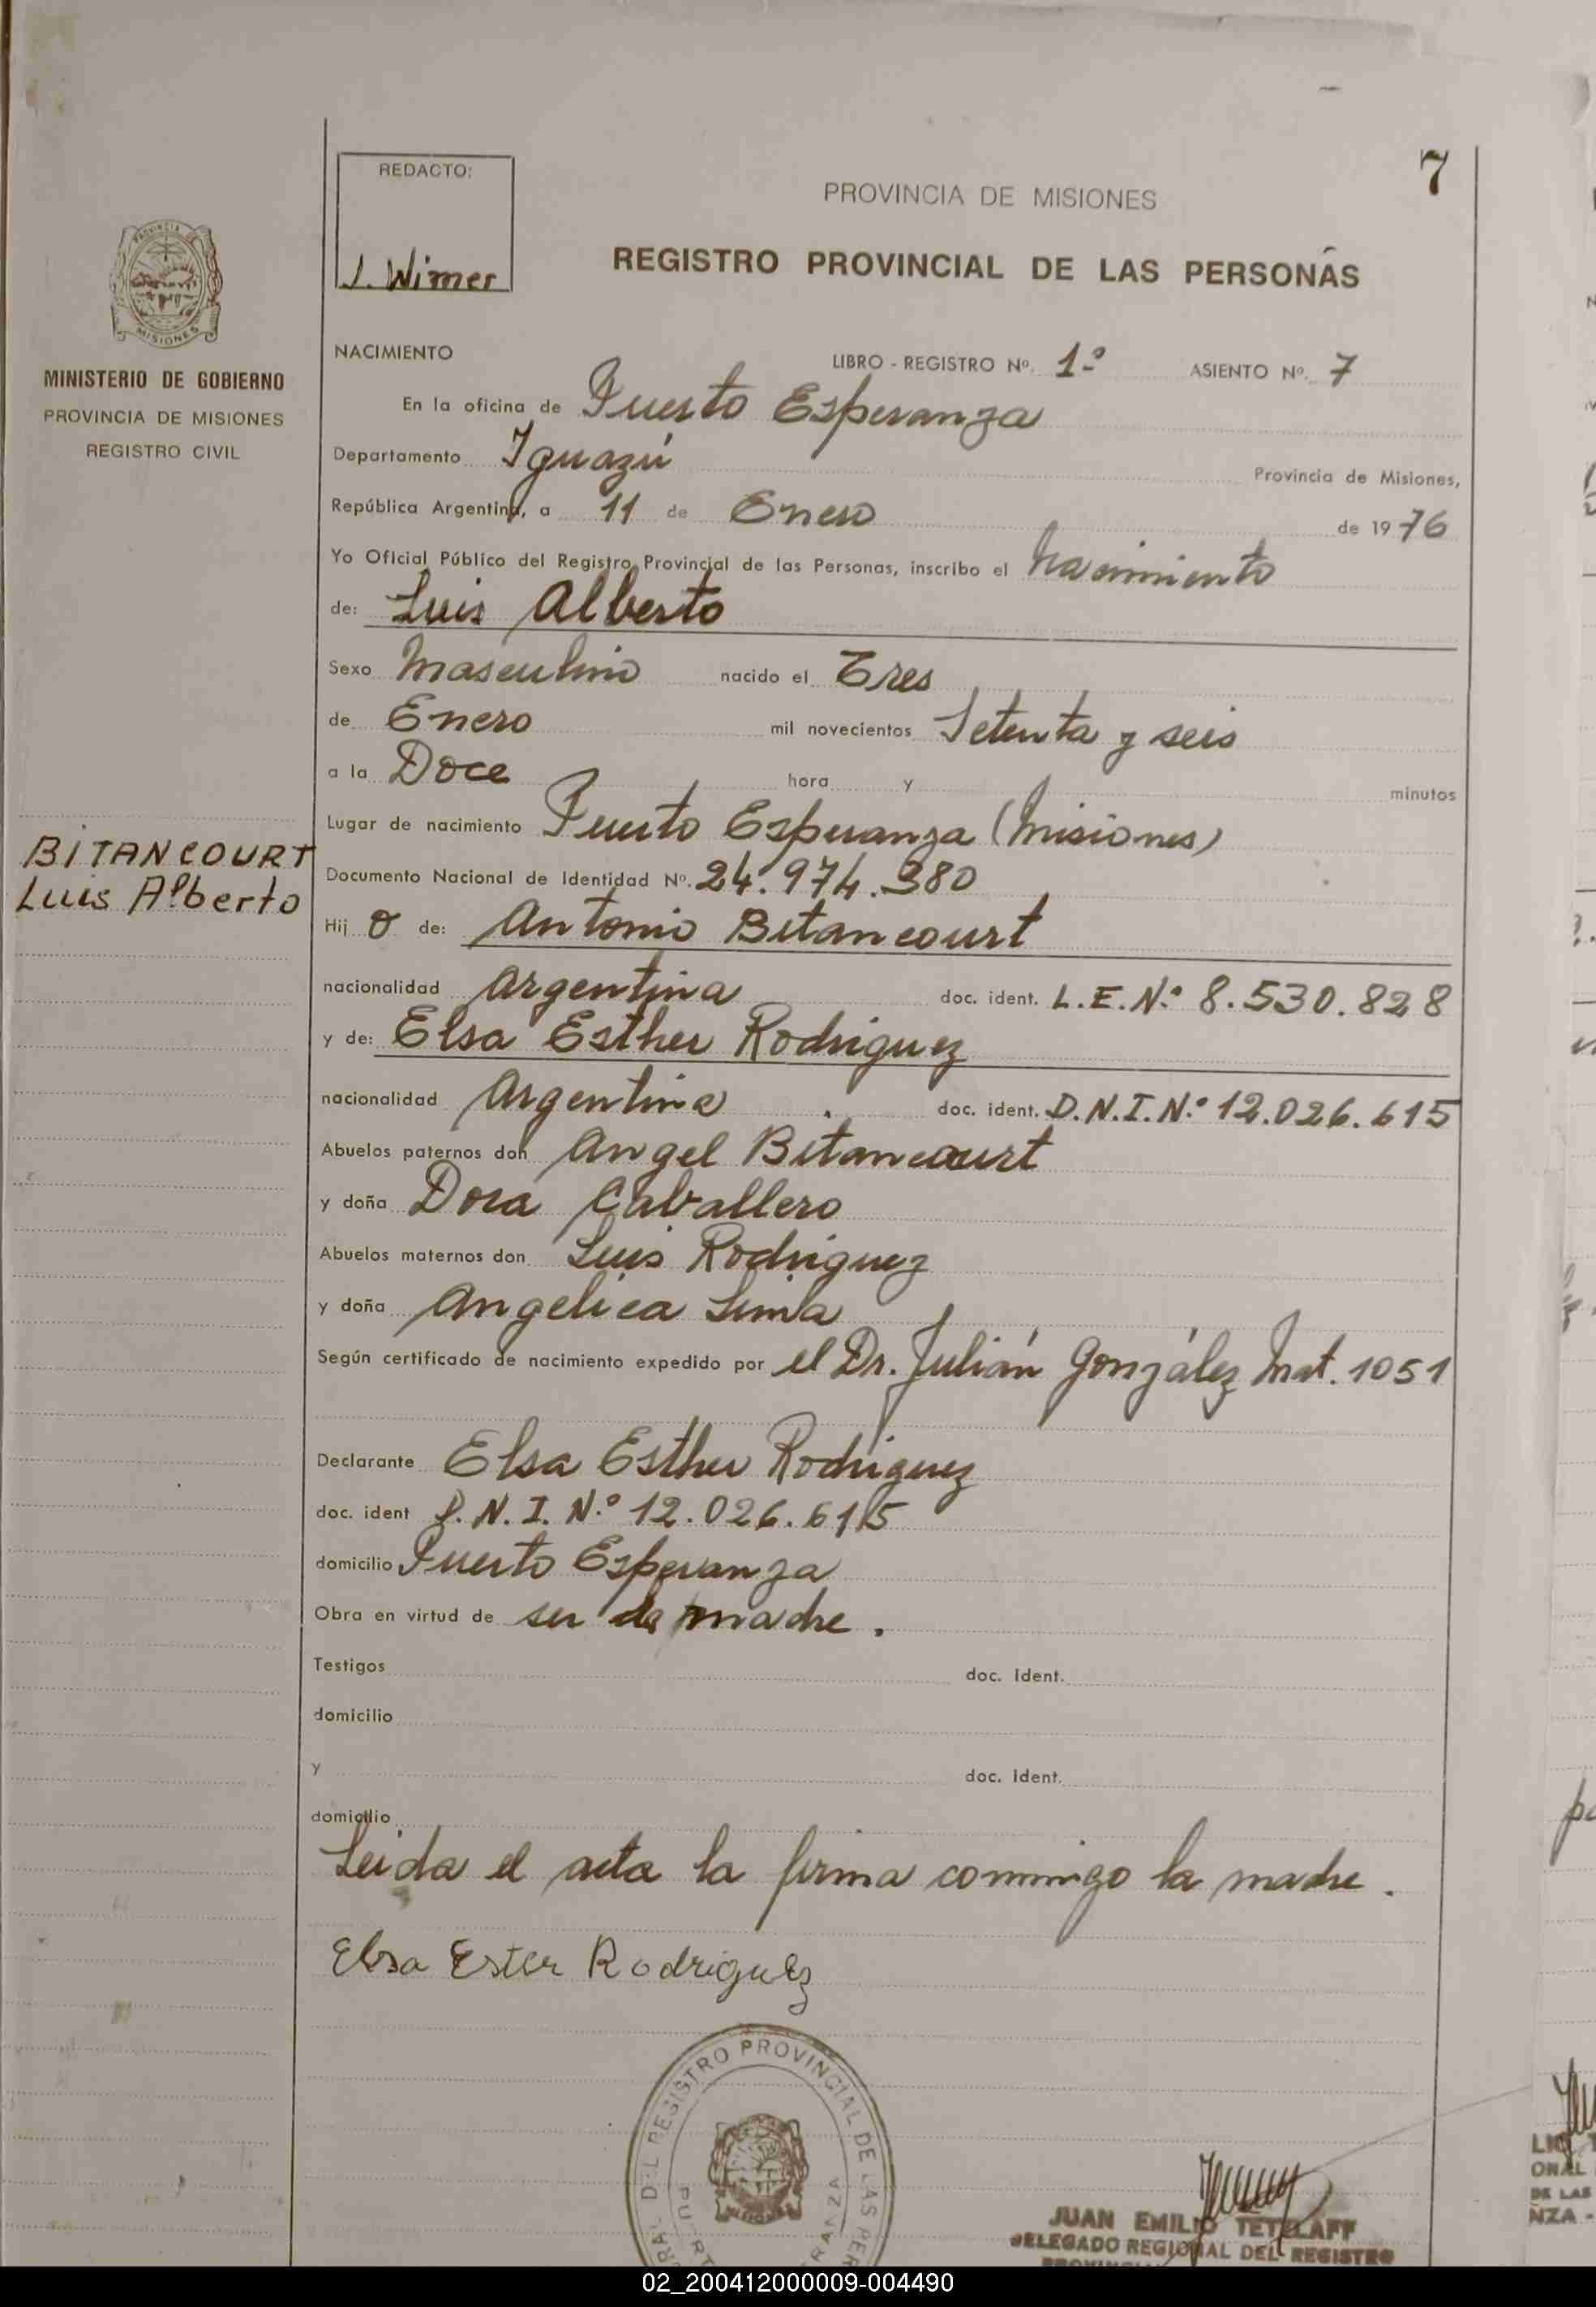 7
REDACTO:
J. Wimer
PROVINCIA DE MISIONES
REGISTRO PROVINCIAL DE LAS PERSONAS
PROVINCIA DE
MISIONES
MINISTERIO DE GOBIERNO
PROVINCIA DE MISIONES
REGISTRO CIVIL
NACIMIENTO LIBRO - REGISTRO Nº. 1º ASIENTO Nº. 7
En la oficina de Puerto Esperanza
Departamento Iguazú Provincia de Misiones,
República Argentina, a 11 de Enero de 1976
Yo Oficial Público del Registro Provincial de las Personas, inscribo el nacimiento
de: Luis Alberto
Sexo Masculino nacido el Tres
de Enero mil novecientos Setenta y seis
a la Doce hora y minutos
Lugar de nacimiento Puerto Esperanza (Misiones)
BITANCOURT
Luis Alberto
Documento Nacional de Identidad Nº. 24.974.380
Hij o de: Antonio Bitancourt
nacionalidad Argentina doc. ident. L.E.Nº 8.530.828
y de: Elsa Esther Rodriguez
nacionalidad Argentina doc. ident. D.N.I.Nº 12.026.615
Abuelos paternos don Angel Bitancourt
y doña Dora Caballero
Abuelos maternos don Luis Rodriguez
y doña Angelica Lima
Según certificado de nacimiento expedido por el Dr. Julián González Mat. 1051
Declarante Elsa Esther Rodriguez
doc. ident D.N.I.Nº 12.026.615
domicilio Puerto Esperanza
Obra en virtud de ser la madre.
Testigos doc. ident.
domicilio
y doc. ident.
domicilio
Leida el acta la firma conmigo la madre.
Elsa Ester Rodriguez
DEL REGISTRO PROVINCIAL DE LAS PER
JUAN EMILIO TETZLAFF
DELEGADO REGIONAL DEL REGISTRO
02_200412000009-004490